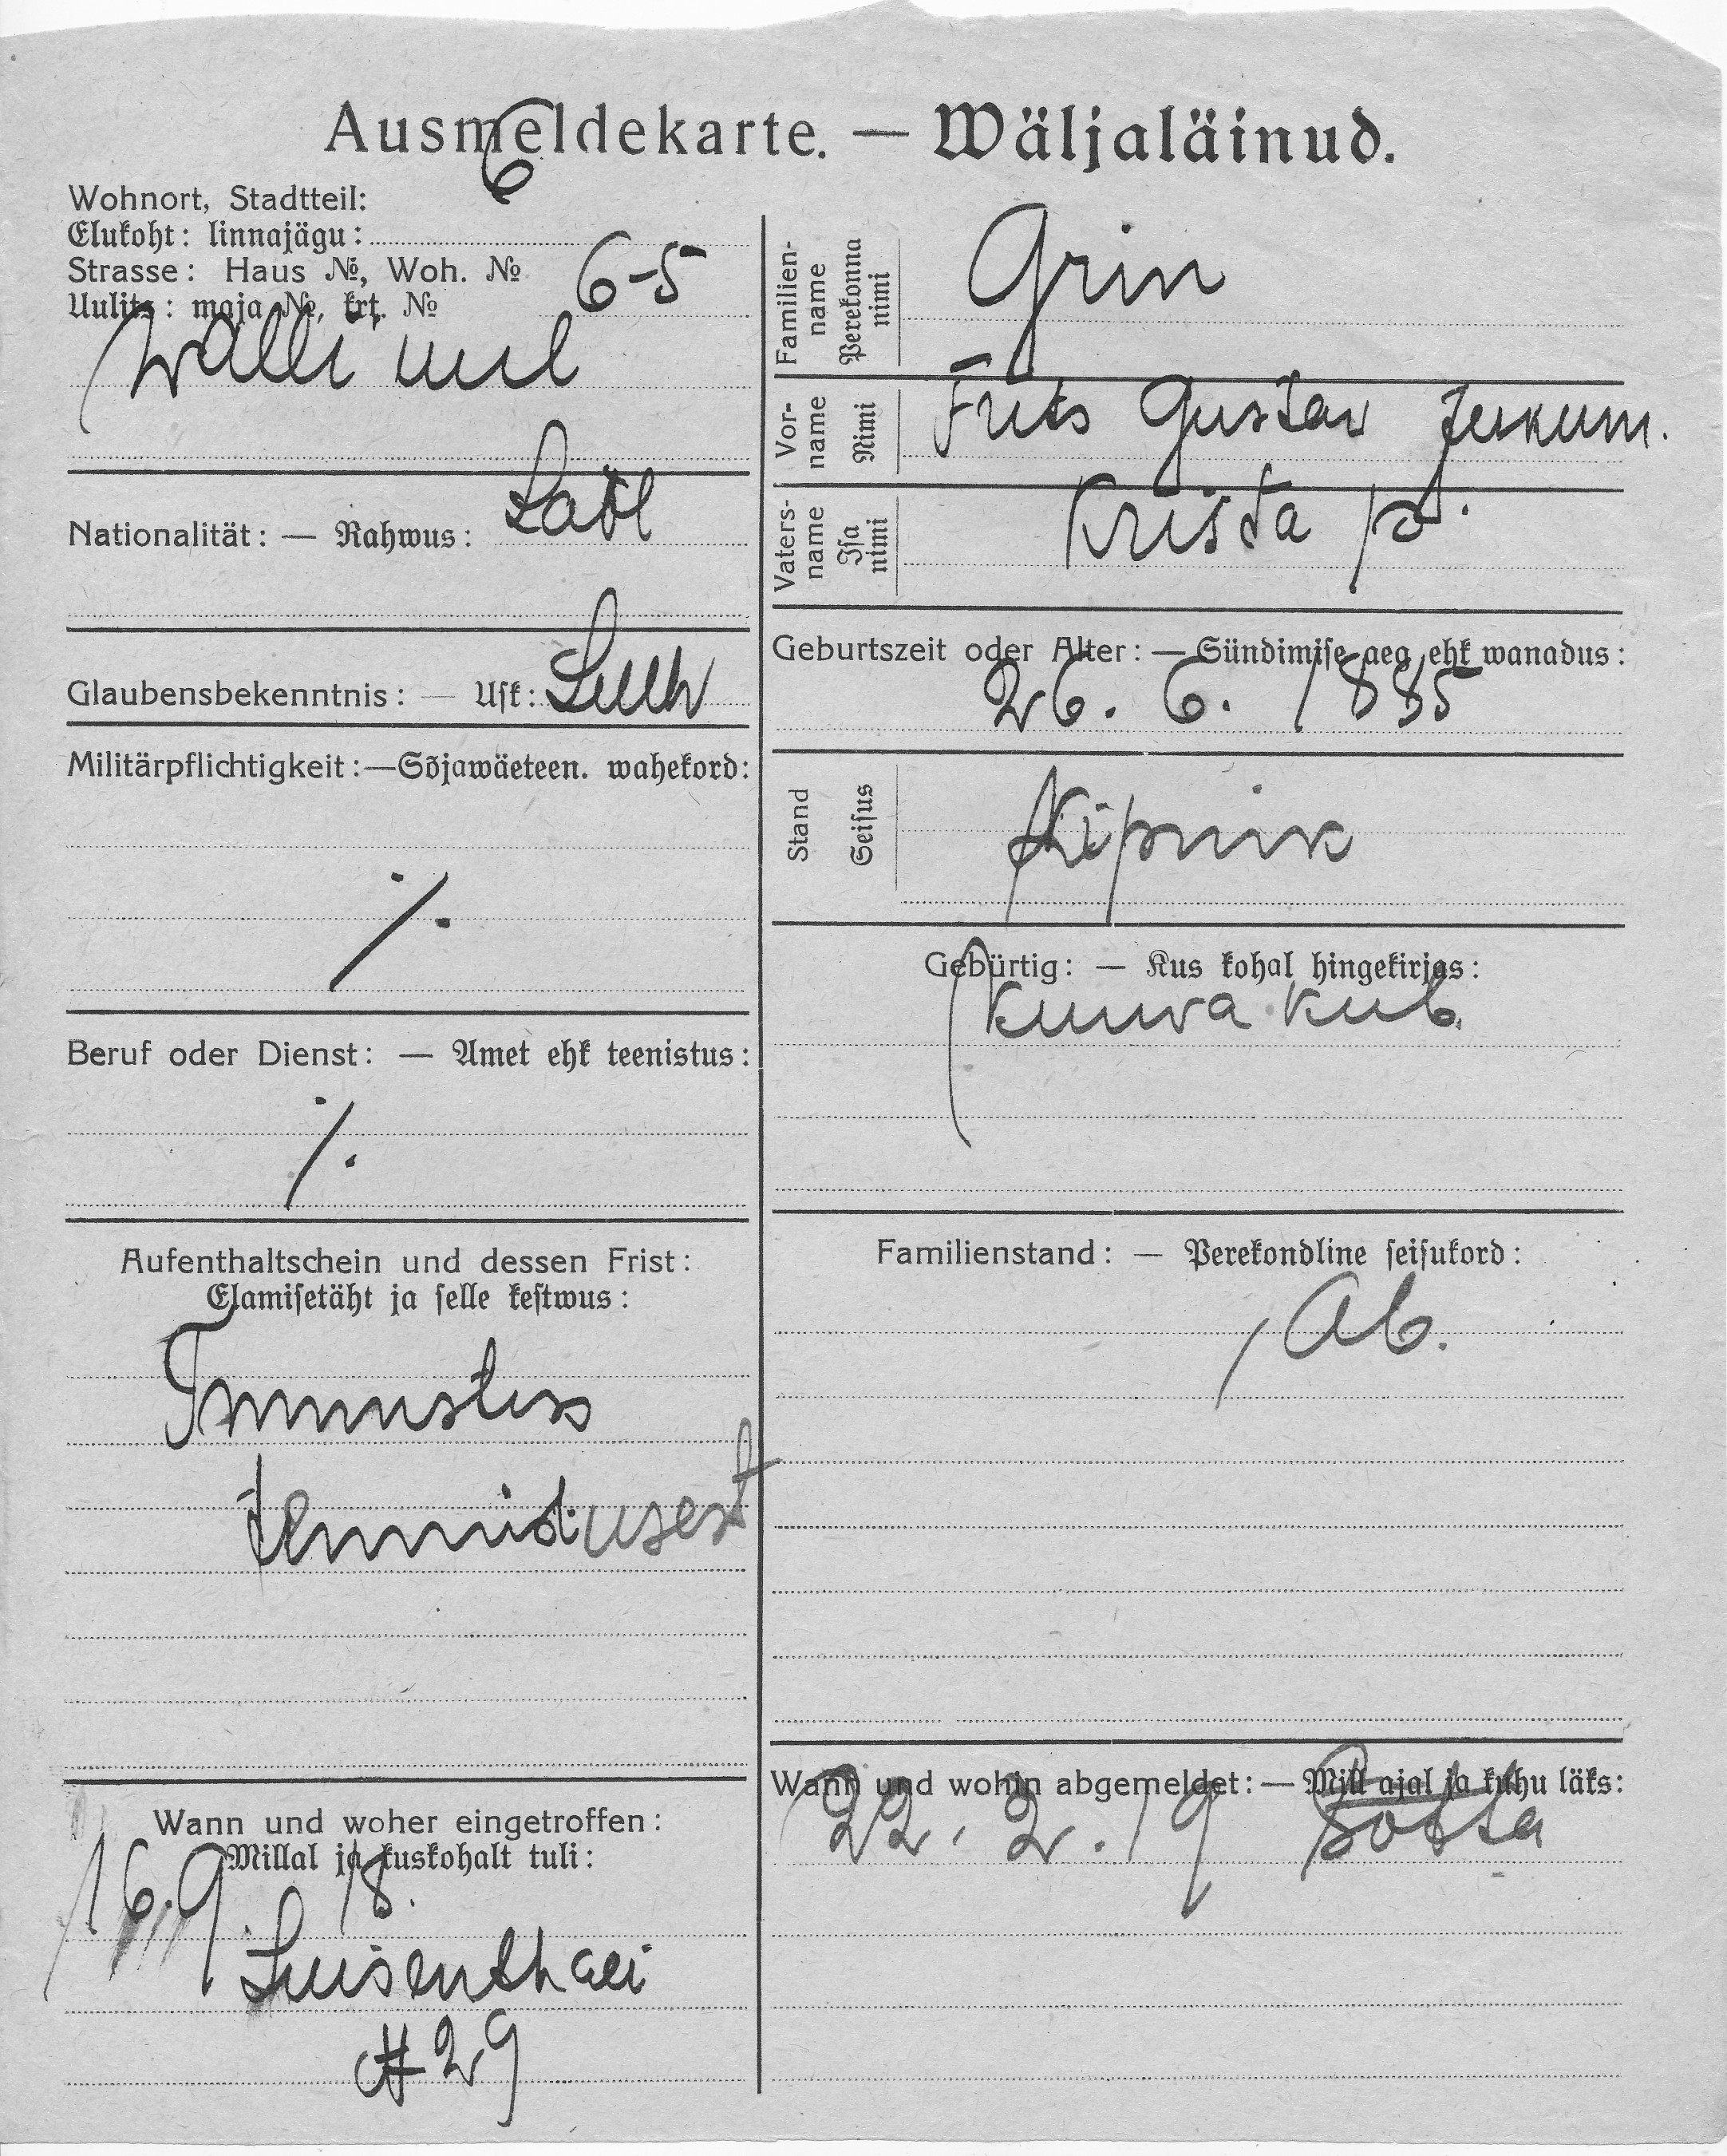 Ausmeldekarte. — Wäljaläinud.
6
Wohnort, Stadtteil:
Elukoht: linnajägu:
Strasse: Haus №, Woh. №
Uulits: maja №, krt. №
6-5
Walli uul
Nationalität: — Rahwus:
Lätl
Glaubensbekenntnis: — Usk: Luth
Militärpflichtigkeit: — Sõjawäeteen. wahekord:
/.
Beruf oder Dienst: — Amet ehk teenistus:
/.
Aufenthaltschein und dessen Frist:
Elamisetäht ja selle kestwus:
Tunnustuss
Wann und woher eingetroffen:
Millal ja kuskohalt tuli:
16.9.18.
Luisenthali
# 29
Familien-
name
Perekonna
nimi
Grin
Vor-
name
Nimi
Frits Gustav
Vaters-
name
Isa
nimi
Krista p.
Geburtszeit oder Alter: — Sündimise aeg ehk wanadus:
26. 6. 1885
Stand
Seisus
Kipnik
Gebürtig: — Kus kohal hingekirjas:
Kurwa kub.
Familienstand: — Perekondline seisukord:
Ab.
Wann und wohin abgemeldet: — Mill ajal ja kuhu läks:
22. 2. 19